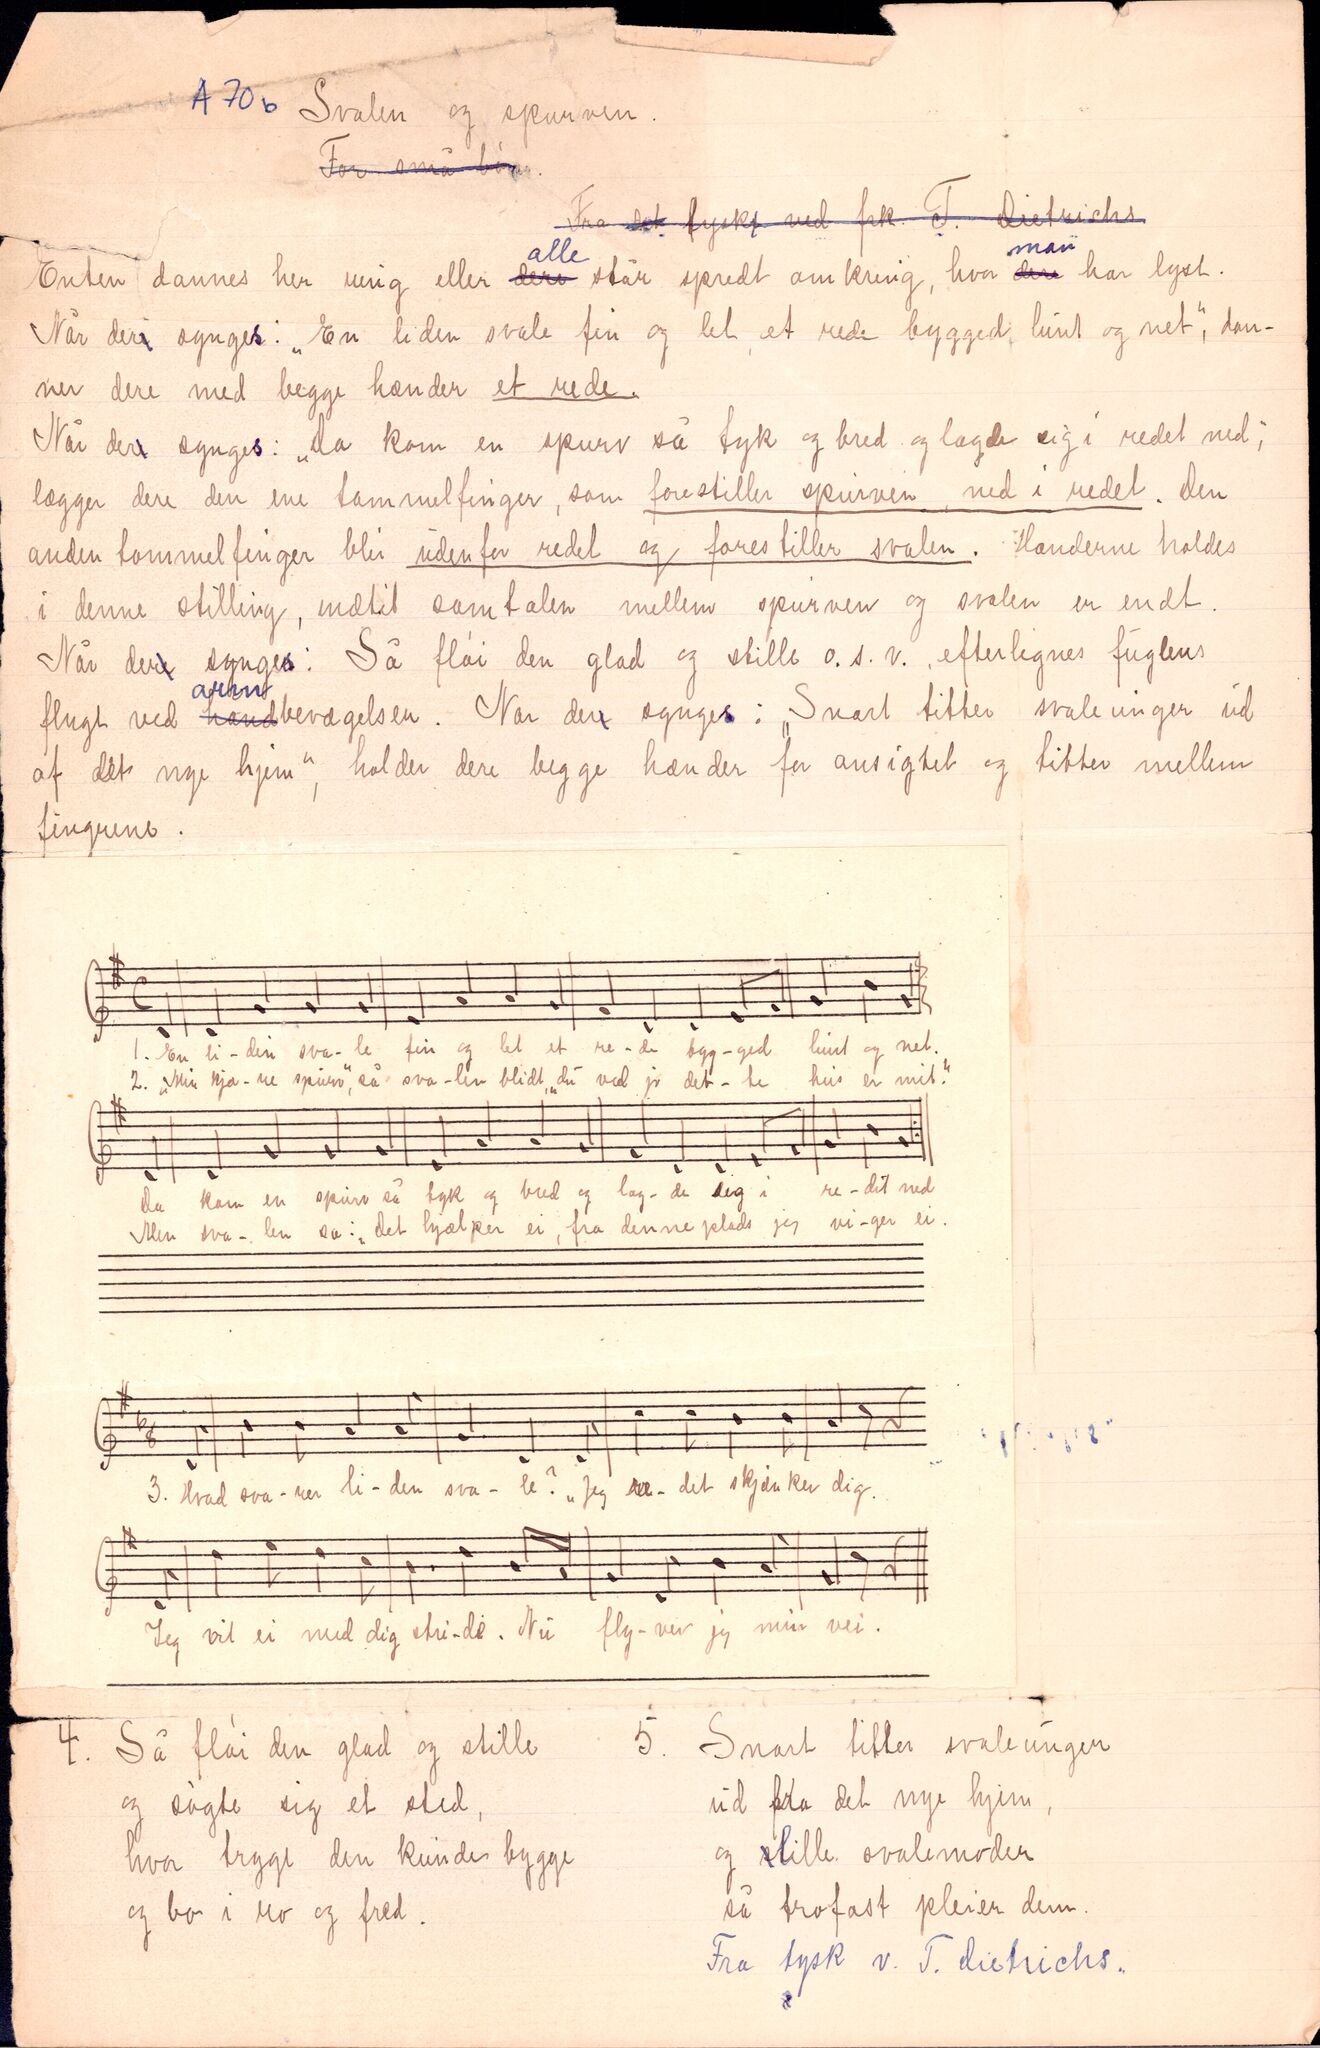 A 70b Svalen og spurven.
For små børn.
Fra det tyske ved frk. T. Dietrichs
alle man
Enten dannes her ring eller dere står spredt omkring, hvor dere har lyst.
Når der synges: „En liden svale fin og let, et rede bygged lunt og net", dan-
ner dere med begge hænder et rede.
Når der synges: „Da kom en spurv så tyk og bred og lagde sig i redet ned;
lægger dere den ene tommelfinger, som forestiller spurven, ned i redet. Den
anden tommelfinger blir udenfor redet og forestiller svalen. Hænderne holdes
i denne stilling, indtil samtalen mellem spurven og svalen er endt.
Når der synges: Så fløi den glad og stille o.s.v., efterlignes fuglens
arm
flugt ved håndbevægelser. Når der synges: „Snart titter svaleunger ud
af det nye hjem", holder dere begge hænder for ansigtet og titter mellem
fingrene.
1. En li-den sva-le fin og let et re-de byg-ged lunt og net.
2. „Min kjæ-re spurv", sa sva-len blidt, „du ved jo det-te hus er mit."
Da kom en spurv så tyk og bred og lag-de sig i re-det ned
Men sva-len sa: „det hjælper ei, fra denne plads jeg vi-ger ei.
3. Hvad sva-rer li-den sva-le? „Jeg re-det skjænker dig.
Jeg vil ei med dig stri-de. Nu fly-ver jeg min vei.
4. Så fløi den glad og stille
og søgte sig et sted,
hvor trygt den kunde bygge
og bo i ro og fred.
5. Snart titter svaleunger
ud fra det nye hjem,
og lille svalemoder
så trofast pleier dem.
Fra tysk v. T. Dietrichs.